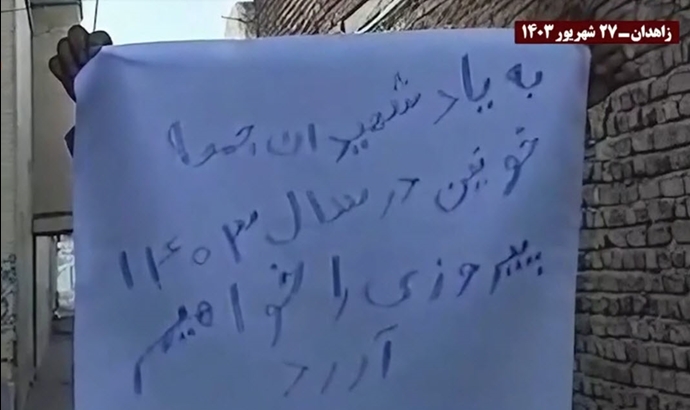 زاهدان_۲۷ شهریور ۱۴۰۳
به یاد شهیدان جمعه
خونین در سال ۱۴۰۳
پیروزی را خواهیم
آورد